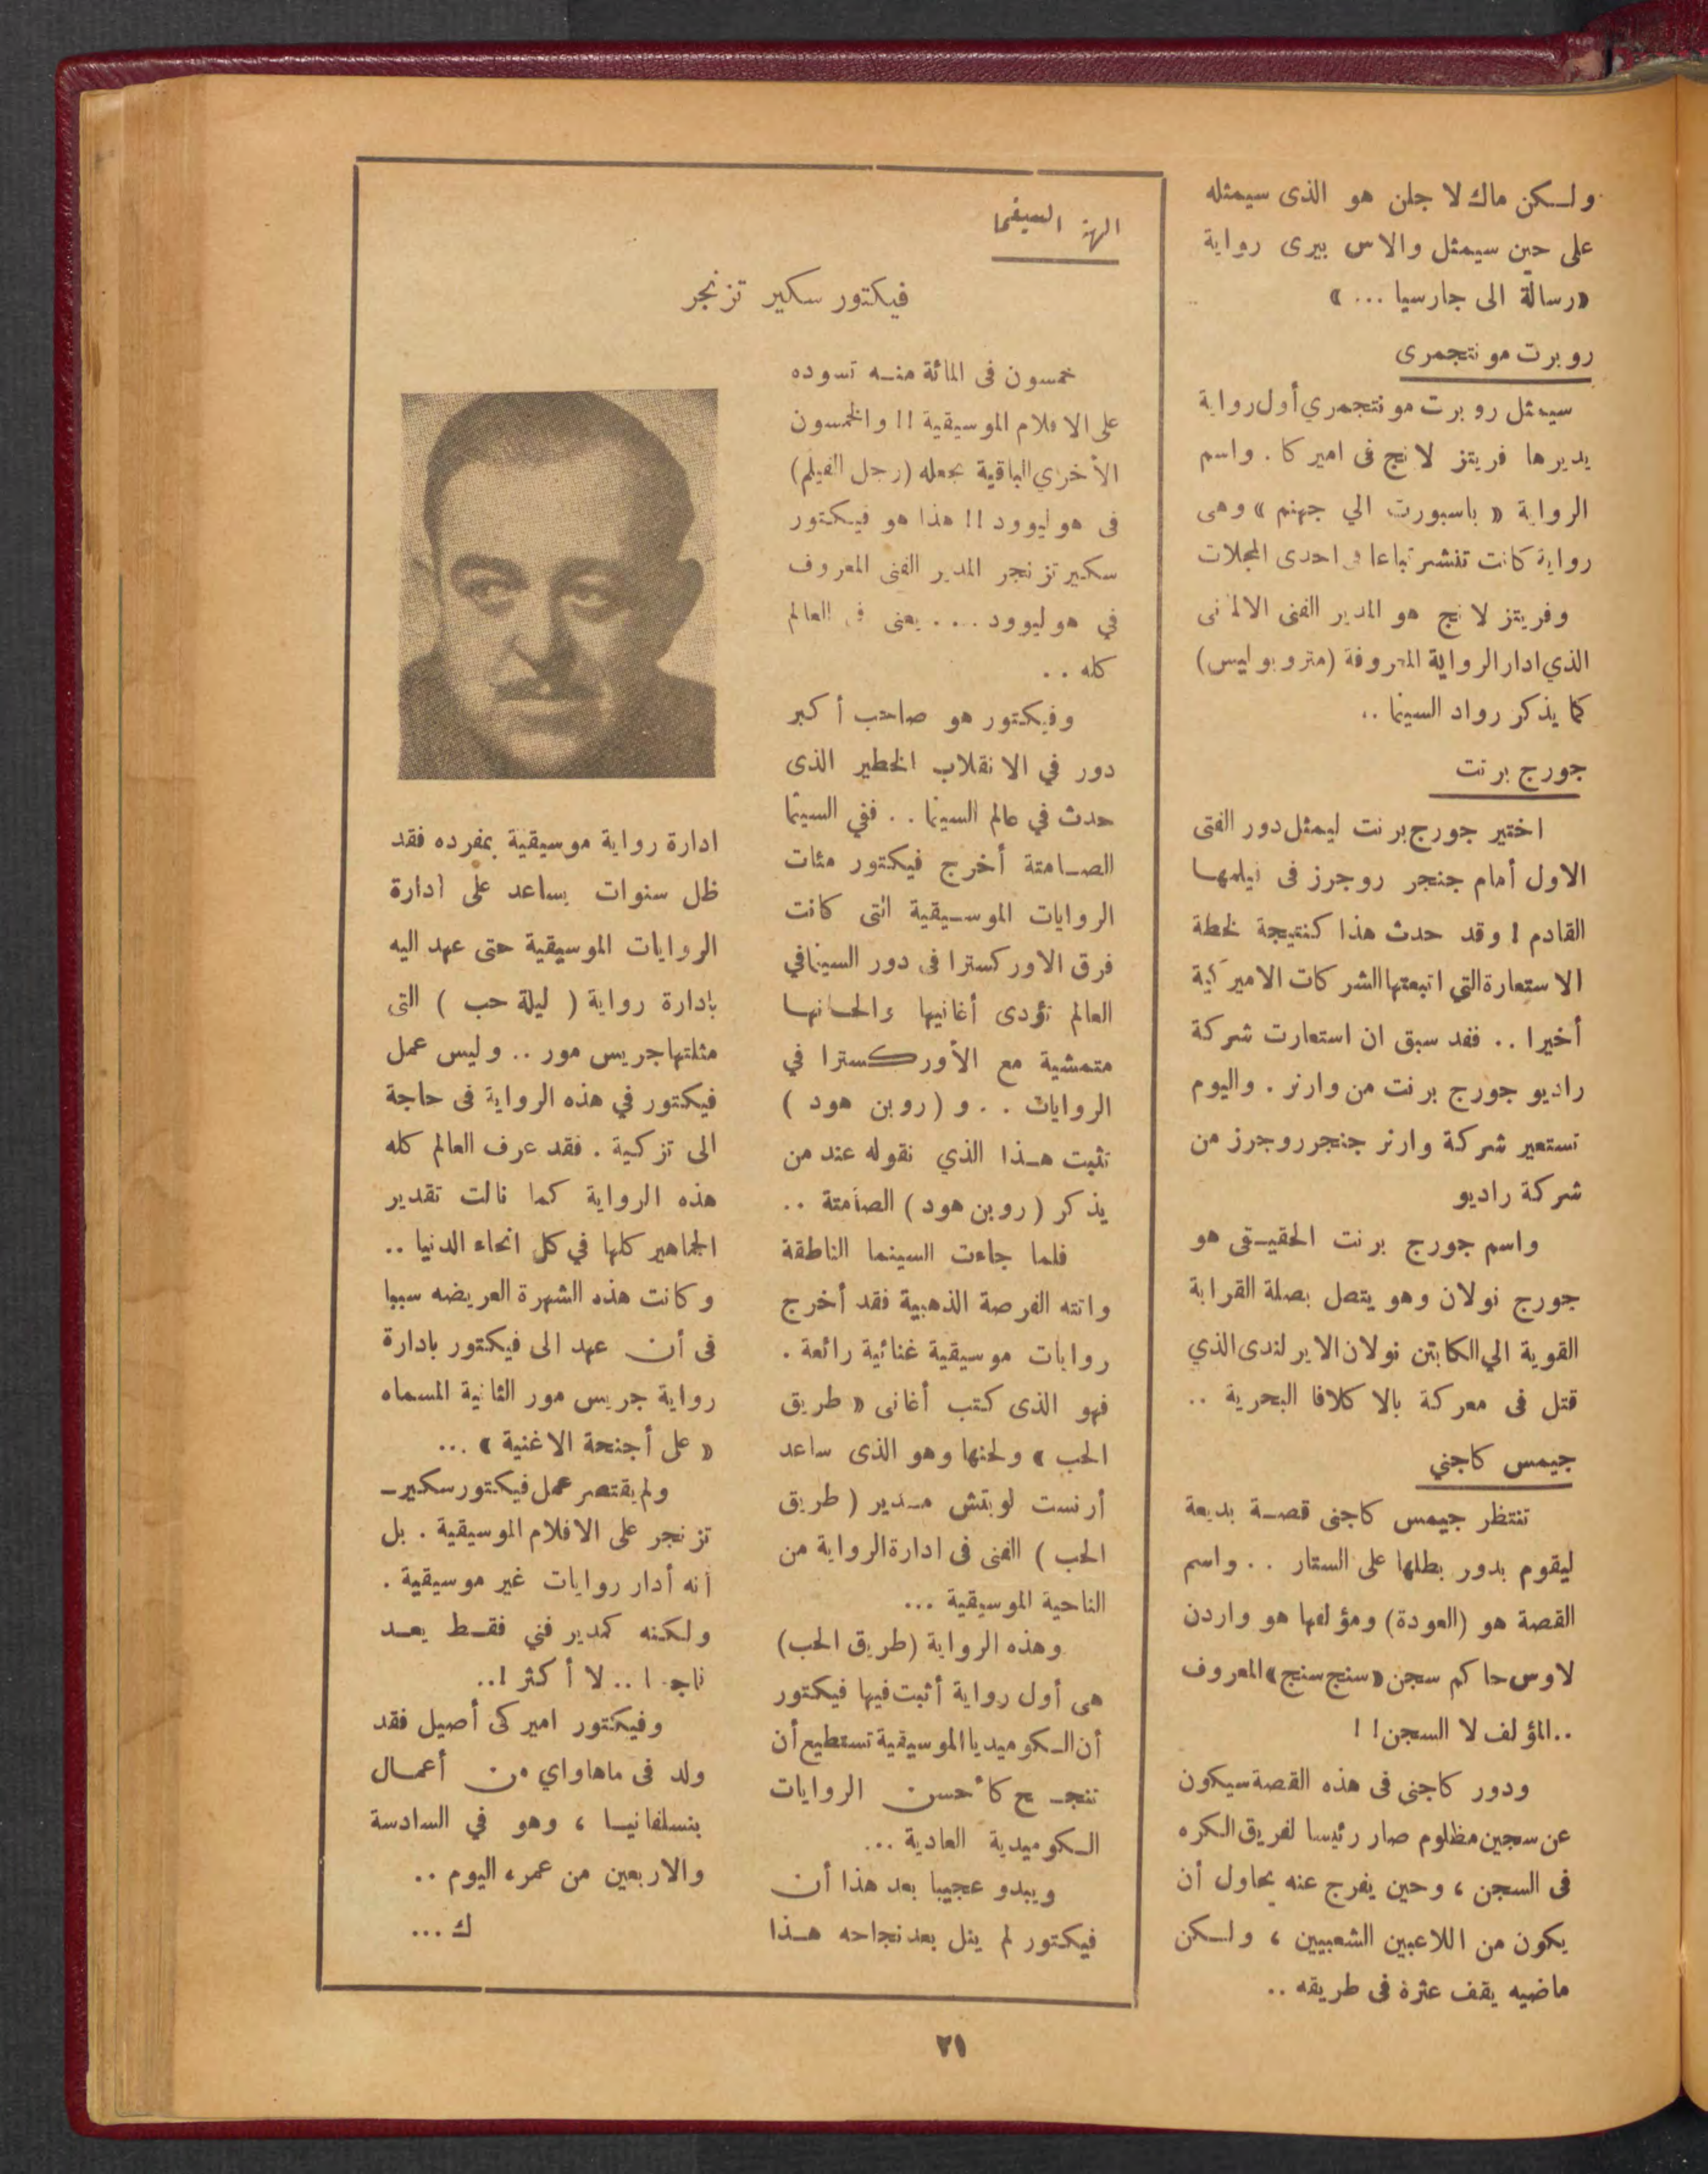 ولكن ماك لا جلن هو الذى سيمثله
على حين سيمثل والاس بيرى رواية
«رسالة الى جارسيا ... »
روبرت مونتجمرى
سيمثل روبرت مونتجمري أول رواية
يديرها فريتز لانج فى اميركا . واسم
الرواية « باسبورت الي جهنم » وهى
رواية كانت تنشر تباعا فى احدى المجلات
وفريتز لانج هو المدير الفنى الالمانى
الذي ادار الرواية المعروفة (متروبوليس)
كما يذكر رواد السينما ..
جورج برنت
اختير جورج برنت ليمثل دور الفتى
الاول أمام جنجر روجرز فى فيلمها
القادم ! وقد حدث هذا كنتيجة لخطة
الاستعارة التي اتبعتها الشركات الاميركية
أخيرا .. فقد سبق ان استعارت شركة
راديو جورج برنت من وارنر . واليوم
تستعير شركة وارنر جنجر روجرز من
شركة راديو
واسم جورج برنت الحقيقى هو
جورج نولان وهو يتصل بصلة القرابة
القوية الي الكابتن نولان الايرلندى الذي
قتل فى معركة بالاكلافا البحرية ..
جيمس كاجني
تنتظر جيمس كاجنى قصة بديعة
ليقوم بدور بطلها على الستار .. واسم
القصة هو (العودة) ومؤلفها هو واردن
لاوس حاكم سجن «سنج سنج» المعروف
..المؤلف لا السجن ! !
ودور كاجنى فى هذه القصة سيكون
عن سجين مظلوم صار رئيسا لفريق الكره
فى السجن ، وحين يفرج عنه يحاول أن
يكون من اللاعبين الشعبيين ، ولكن
ماضيه يقف عثرة فى طريقه ..
الهة السينما
فيكتور سكير تزنجر
خمسون فى المائة منه تسوده
على الافلام الموسيقية !! والخمسون
الأخري الباقية تجعله (رجل الفيلم)
فى هوليوود !! هذا هو فيكتور
سكير تزنجر المدير الفنى المعروف
في هوليوود ... يعنى فى العالم
كله ..
وفيكتور هو صاحب أكبر
دور في الانقلاب الخطير الذى
حدث في عالم السينما .. ففي السينما
الصامتة أخرج فيكتور مئات
الروايات الموسيقية التى كانت
فرق الاوركسترا فى دور السينما في
العالم تؤدى أغانيها والحانها
متمشية مع الأوركسترا في
الروايات .. و (روبن هود )
تثبت هذا الذي نقوله عند من
يذكر (روبن هود) الصامتة ..
فلما جاءت السينما الناطقة
واتته الفرصة الذهبية فقد أخرج
روايات موسيقية غنائية رائعة .
فهو الذى كتب أغانى « طريق
الحب » ولحنها وهو الذى ساعد
أرنست لوبتش مدير ( طريق
الحب ) الفنى فى ادارة الرواية من
الناحية الموسيقية ...
وهذه الرواية (طريق الحب)
هى أول رواية أثبت فيها فيكتور
أن الكوميديا الموسيقية تستطيع أن
تنجح كأحسن الروايات
الكوميدية العادية ...
ويبدو عجيبا بعد هذا أن
فيكتور لم ينل بعد نجاحه هذا
ادارة رواية موسيقية بمفرده فقد
ظل سنوات يساعد على ادارة
الروايات الموسيقية حتى عهد اليه
بادارة رواية ( ليلة حب ) التى
مثلتها جريس مور .. وليس عمل
فيكتور في هذه الرواية فى حاجة
الى تزكية . فقد عرف العالم كله
هذه الرواية كما نالت تقدير
الجماهير كلها في كل انحاء الدنيا ..
وكانت هذه الشهرة العريضه سببا
فى أن عهد الى فيكتور بادارة
رواية جريس مور الثانية المسماه
« على أجنحة الاغنية » ...
ولم يقتصر عمل فيكتور سكير -
تزنجر على الافلام الموسيقية . بل
انه أدار روايات غير موسيقية .
ولكنه كمدير فني فقط يعد
ناجحا .. لا أكثر !..
وفيكتور اميركى أصيل فقد
ولد فى ماهاواي من أعمال
بنسلفانيا ، وهو في السادسة
والاربعين من عمره اليوم ..
ك ...
٢١